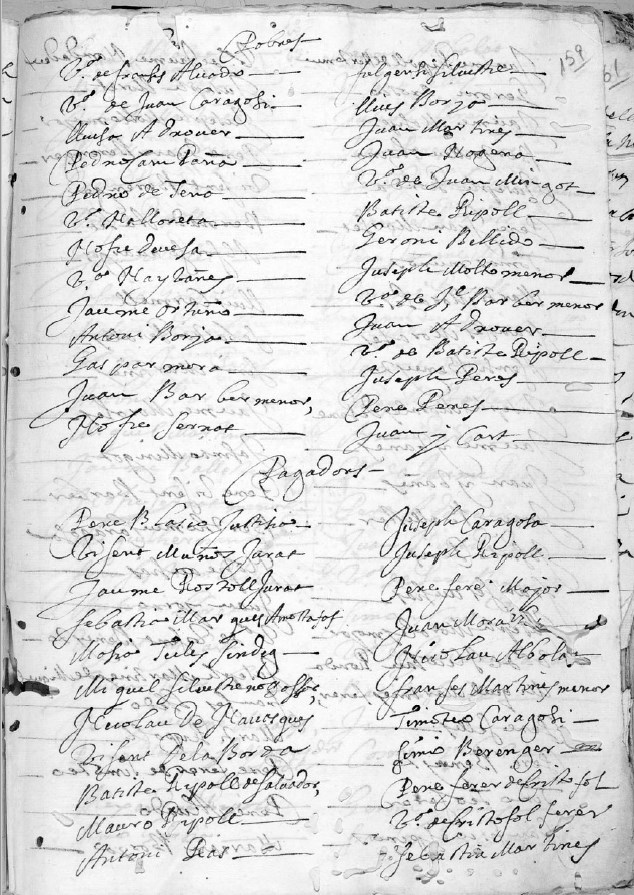 Pobres
159
Va. de franses Aluado
Va. de Juan Caragosi
Lluisa Adrouer
Pedro Cam Paña
Pedro de Tena
Va. Nalloreta
Nofre deuesa
Va. Naybañes
Jaume ortuño
Antoni Borja
Gaspar mora
Juan Barber menor,
Nofre sernat
fulgensi siluestre
Lluis Borja
Juan Martines
Juan Nogera
Va. de Juan Mingot
Batiste Ripoll
Geroni Bellido
Juseph Molto menor
Va. de Je. Barber menor
Juan Adrouer
Va. de Batiste Ripoll
Juseph Peres
Pere Peres
Juan y Cart
Pagadors
Pere Blasco Justisia
Visent Muños Jurat
Jaume Rostoll Jurat
sebastia Marques Amotasef
Mosio Sindig
Miquel siluestre
Nicolau De Nauasques
Visent De la Borda
Batiste Ripoll de saluador,
Mauro Ripoll
Antoni
Juseph Caragosa
Juseph Ripoll
Pere ferer Major
Juan
Nicolau Albola
franses Martines menor
Timoteo Caragosi
Berenger
Pere ferer de Cristofol
Va. de Cristofol ferer
sebastia Martines